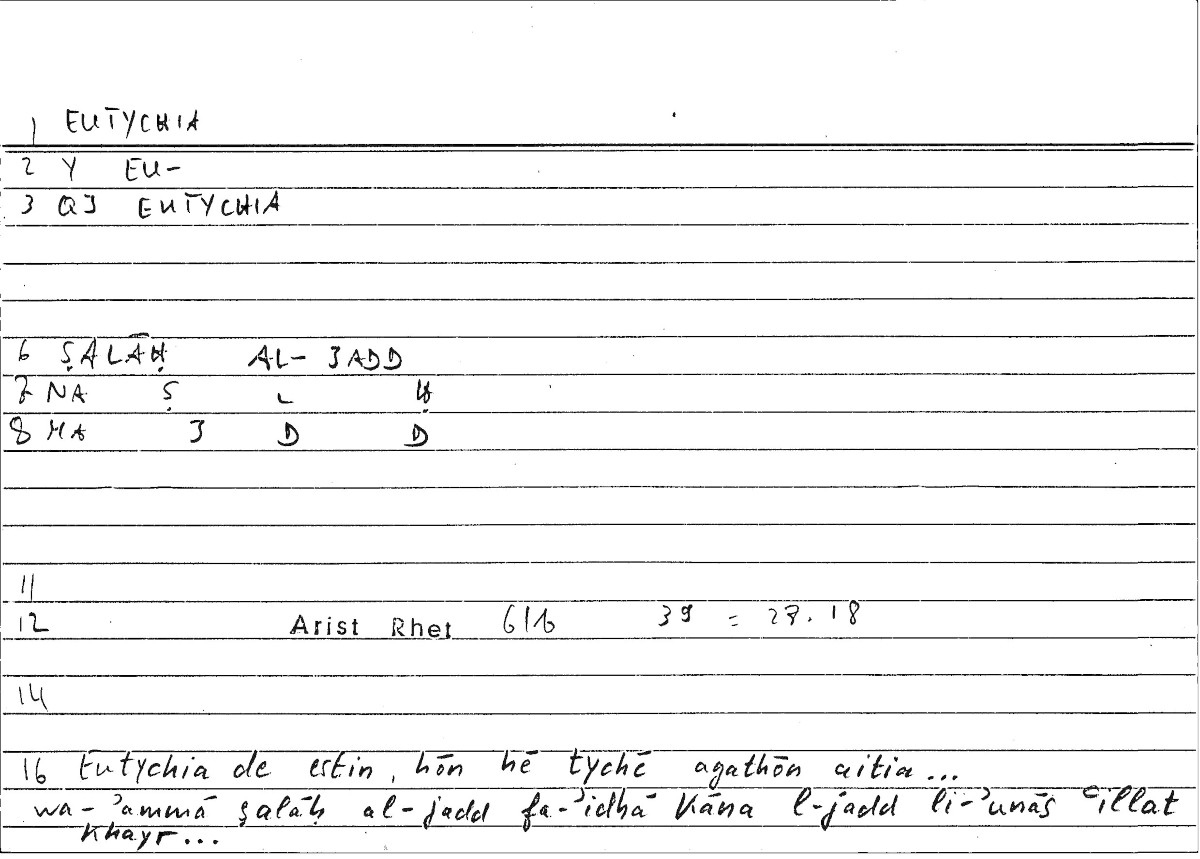 1 EUTYCHIA
2 Y EU-
3 QJ EUTYCHIA
6 ṢALĀḤ AL-JADD
7 NA Ṣ L Ḥ
8 MA J D D
11
12 Arist Rhet 61b 39 = 27.18
14
16 Eutychia de estin, hōn hē tychē agathōn aitia...
wa-ʾammā ṣalāḥ al-jadd fa-ʾidhā kāna l-jadd li-ʾunās ʿillat
khayr...